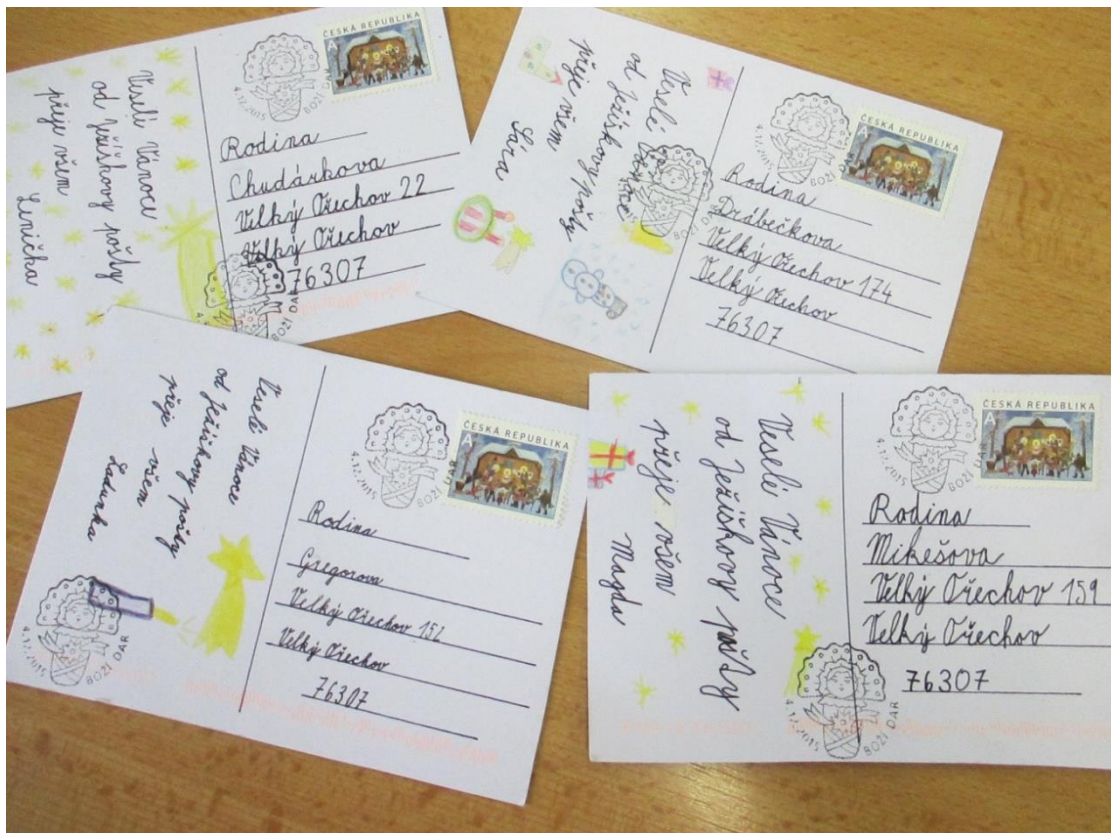 Veselé Vánoce
od Ježíškovy pošty
přeje všem
Lenička
ČESKÁ REPUBLIKA
A
4.12.2015 BOŽÍ DAR
Rodina
Chudárkova
Velký Ořechov 22
Velký Ořechov
76307
BOŽÍ DAR
Veselé Vánoce
od Ježíškovy pošty
přeje všem
Sára
BOŽÍ DAR
ČESKÁ REPUBLIKA
A
4.12.2015 BOŽÍ DAR
Rodina
Drábečkova
Velký Ořechov 174
Velký Ořechov
76307
Veselé Vánoce
od Ježíškovy pošty
přeje všem
4.12.2015 BOŽÍ DAR
ČESKÁ REPUBLIKA
A
4.12.2015 BOŽÍ DAR
Rodina
Gregorova
Velký Ořechov 152
Velký Ořechov
76307
Veselé Vánoce
od Ježíškovy pošty
přeje všem
Magda
ČESKÁ REPUBLIKA
A
4.12.2015 BOŽÍ DAR
Rodina
Mikešova
Velký Ořechov 159
Velký Ořechov
76307
4.12.2015 BOŽÍ DAR